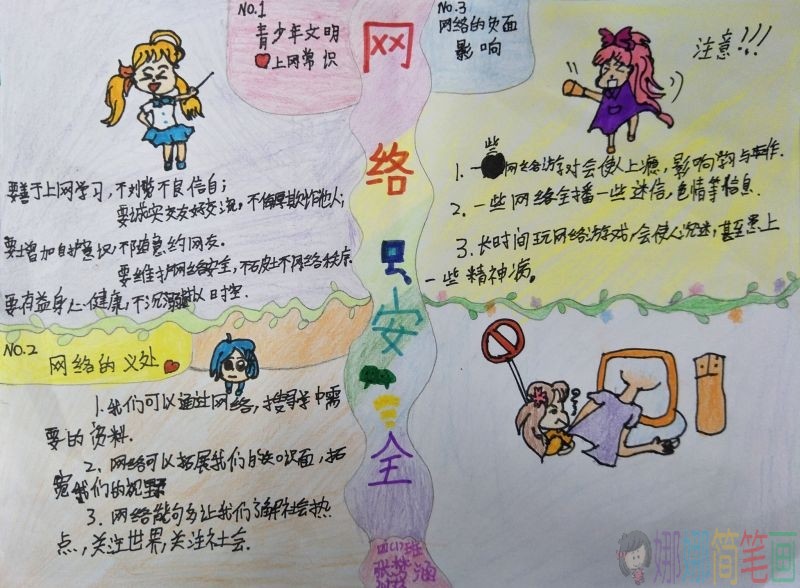 NO.1
青少年文明
上网常识
要善于上网学习，不浏览不良信自；
要诚实友好交流，不侮辱欺诈他人；
要增加自护意识，不随意约网友．
要维护网络安全，不破坏网络秩序．
要有益身心健康，不沉溺虚拟时空．
NO.2
网络的义处
1.我们可以通过网络，搜寻学中需
要的资料．
2.网络可以拓展我们的知识面，拓
宽我们的视野
3.网络能够多让我们了解社会热
点，关注世界，关注社会．
网
络
安
全
四(1)班
张梦
涵
NO.3
网络的负面
影响
注意!!!
1.一些网络游对会使人上瘾，影响学与工作．
2.一些网络全播一些迷信，色情等信息．
3.长时间玩网络游戏，会使人沉迷，甚至患上
一些精神病。
娜爱简笔画